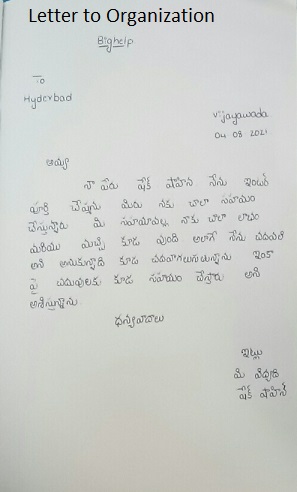 Letter to Organization
Bighelp
To
Hyderbad
Vijayawada
04 08 2021
అయ్యా
నా పేరు షేక్ షాహిన నేను ఇంటర్
పూర్తి చేప్పను మిరు నకు చాలా సహయం
చేస్తున్నారు మి సహయంవల్ల నాకు చాలా లాభం
మరియు మచ్చి కూడ వుంది అలాగే నేను చదవలి
అని అనుకున్నాది కూడ చదవగాలుగుతున్నాను ఇంకా
పై చదువులకు కూడ సహయం చేస్తారు అని
అశిస్తున్నాను.
ధన్యవాదాలు
ఇట్లు
మి విధ్యర్ది
షేక్ షాహిన్